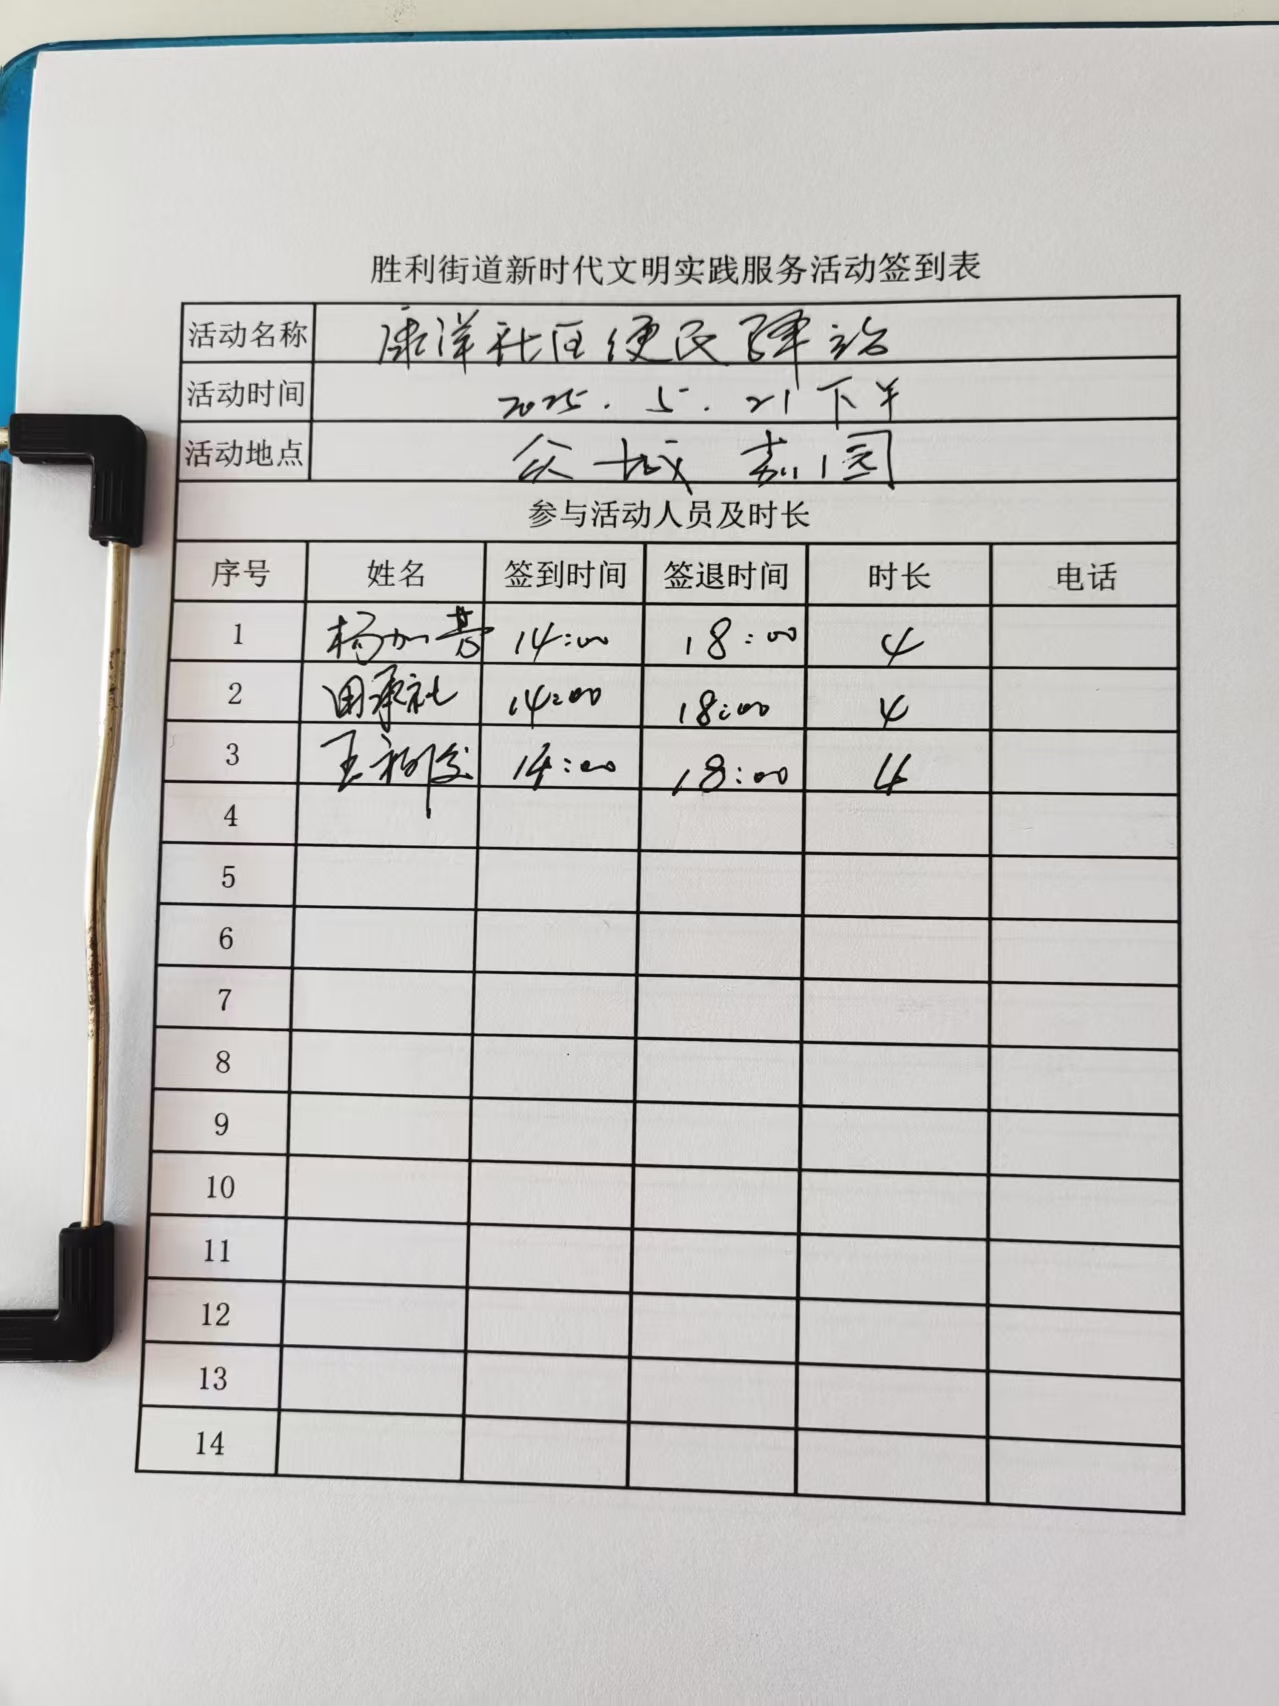 胜利街道新时代文明实践服务活动签到表
活动名称 康洋社区便民驿站
活动时间 2025.5.21下午
活动地点 众城嘉园
参与活动人员及时长
序号 姓名 签到时间 签退时间 时长 电话
1 杨加 14:00 18:00 4
2 田承社 14:00 18:00 4
3 王 14:00 18:00 4
4
5
6
7
8
9
10
11
12
13
14